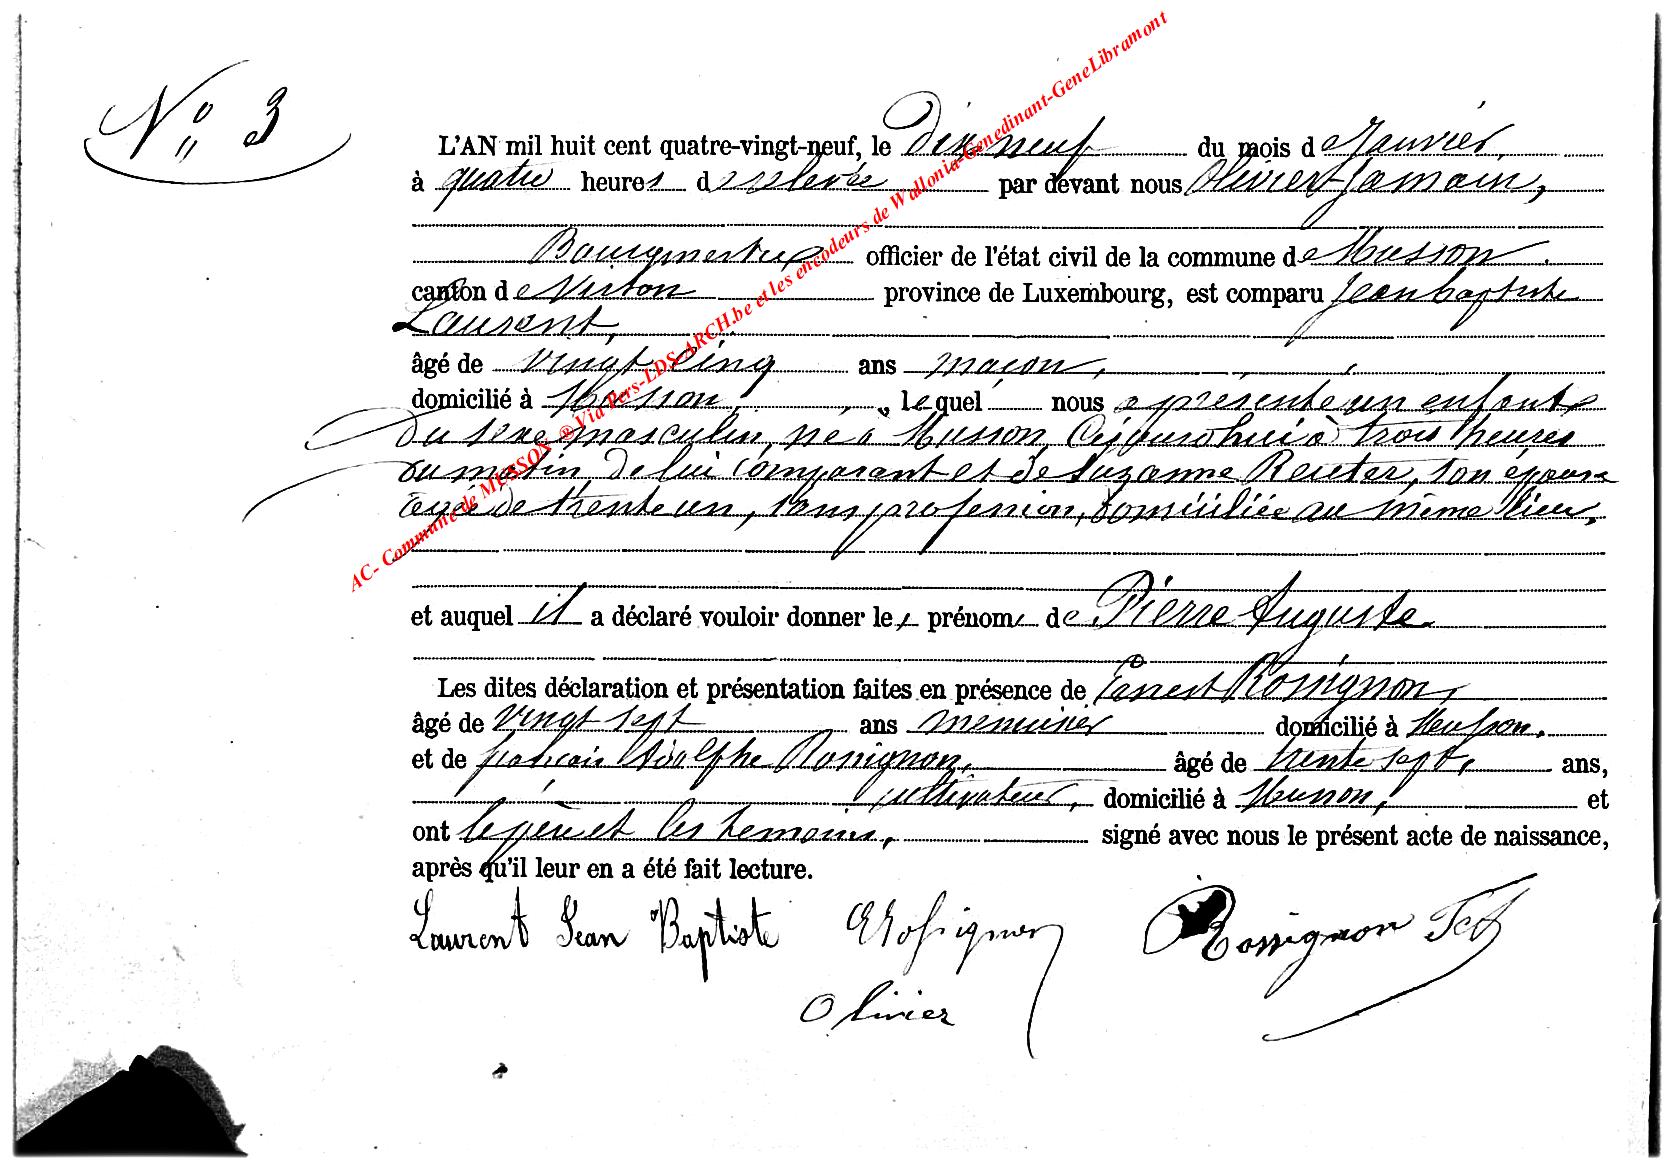 N° 3
L'AN mil huit cent quatre-vingt-neuf, le Dix neuf du mois de Janvier,
à quatre heures de relevée par devant nous Olivier Jamain,
Bourgmestre officier de l'état civil de la commune de Musson.
canton de Virton province de Luxembourg, est comparu Jean baptiste
Laurent,
âgé de vingt cinq ans maçon,
domicilié à Musson, lequel nous a présenté un enfant
du sexe masculin, né à Musson, Cejourd'hui à trois heures
du matin, de lui comparant et de Suzanne Reuter, son épouse
âgée de trente un, sans profession, domiciliée au même lieu,
et auquel il a déclaré vouloir donner les prénoms de Pierre Auguste.
Les dites déclaration et présentation faites en présence de Ernest Rossignon,
âgé de vingt sept ans menuisier domicilié à Musson.
et de françois Adolphe Rossignon, âgé de trente sept, ans,
cultivateur, domicilié à Musson, et
ont le père et les temoins, signé avec nous le présent acte de naissance,
après qu'il leur en a été fait lecture.
Laurent Jean Baptiste ERossignon Rossignon
Olivier
AC- Commune de MUSSON ®Via Pers-LDS-ARCH.be et les encodeurs de Wallonia-Genedinant-GeneLibramont